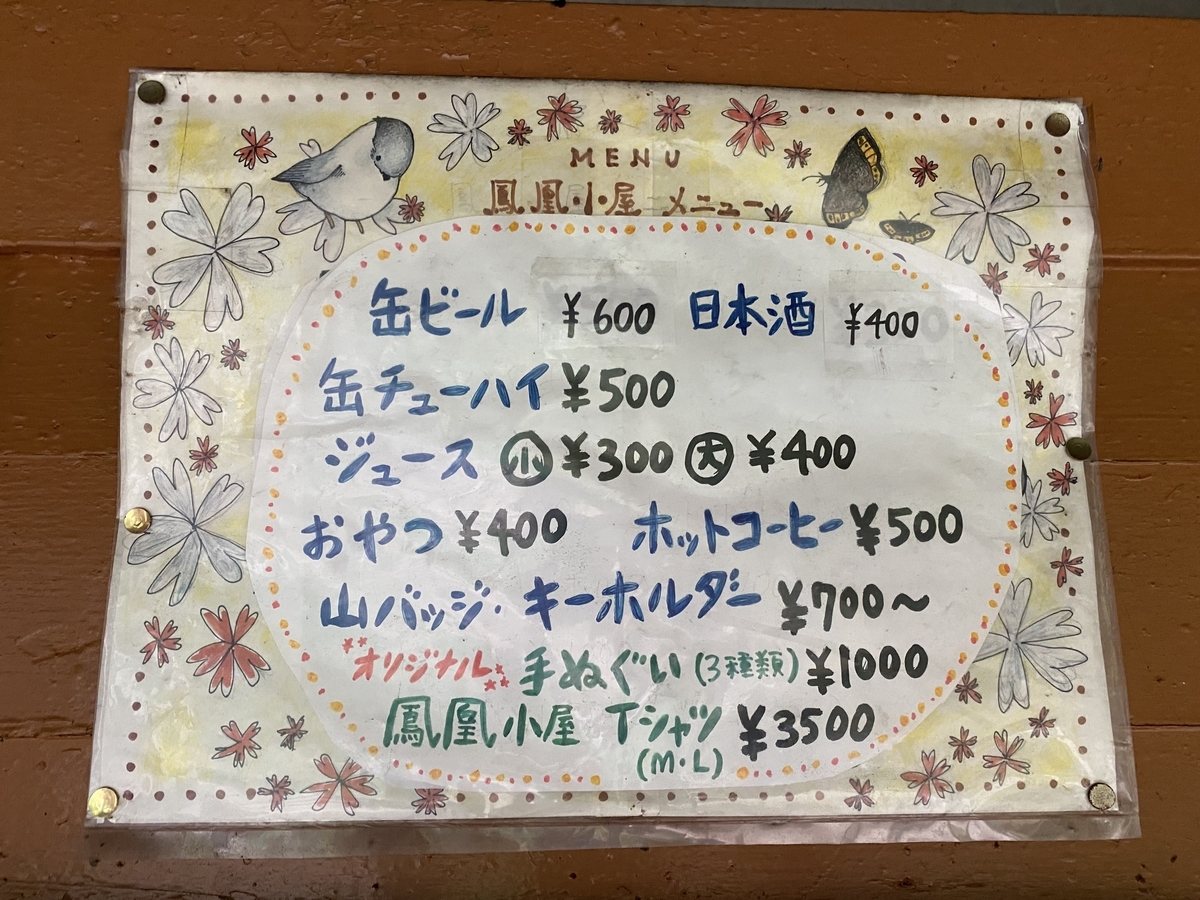 MENU
鳳凰小屋 メニュー
缶ビール ¥600 日本酒 ¥400
缶チューハイ ¥500
ジュース ㊙小 ¥300 大 ¥400
おやつ ¥400 ホットコーヒー ¥500
山バッジ・キーホルダー ¥700〜
オリジナル 手ぬぐい (3種類) ¥1000
鳳凰小屋 Tシャツ ¥3500
(M・L)